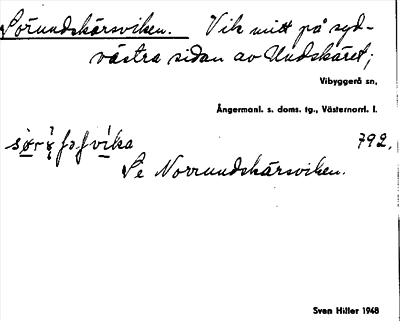 Sörundskärsviken. Vik mitt på syd-
västra sidan av Undskäret;
Vibyggerå sn,
Ångermanl. s. doms. tg., Västernorrl. l.
792.
Se Norrundskärsviken.
Sven Hiller 1948